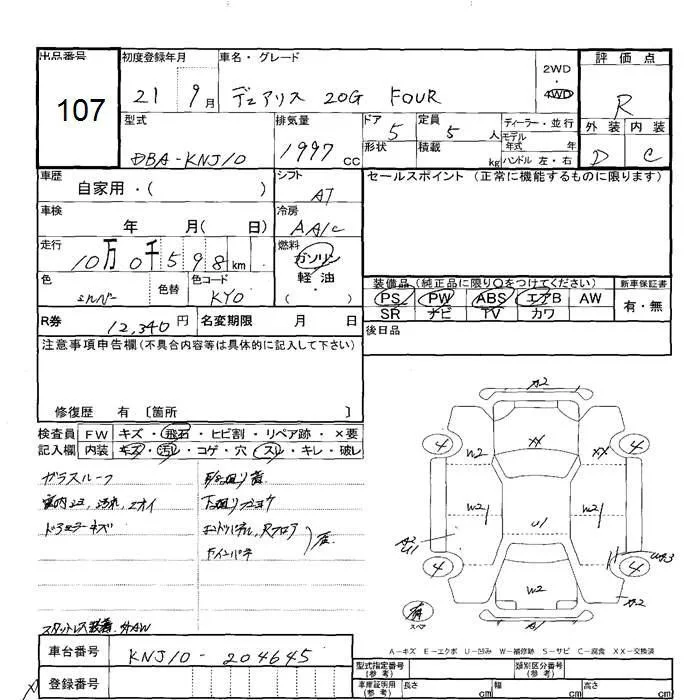 出品番号 初度登録年月 車名・グレード 2WD 評価点
107 21 9月 デュアリス 20G FOUR 4WD R
型式 排気量 ドア 定員 ディーラー・並行 外装 内装
DBA-KNJ10 1997cc 5 5人 モデル年式 年 D C
形状 積載 kg ハンドル 左・右
車歴 自家用・( ) シフト AT セールスポイント (正常に機能するものに限ります)
車検 年 月( 日) 冷房 AA/C
走行 10万0千598km 燃料 ガソリン
軽油
・( )
色 シルバー 色替 色コード KY0
装備品(純正品に限り○をつけてください) 新車保証書
PS PW ABS エアB AW 有・無
SR ナビ TV カワ
R券 12,340円 名変期限 月 日 後日品
注意事項申告欄(不具合内容等は具体的に記入して下さい)
修復歴 有 〔箇所 〕
検査員 FW キズ・飛石・ヒビ割・リペア跡・×要
記入欄 内装 キズ・汚レ・コゲ・穴・スレ・キレ・破レ
ガラスルーフ
A2
4 W2 XX XX 4
W2 U1 W2
A2 U1
4 W2 4
A2
有 スペア A2
スタットレス装着
A-キズ E-エクボ U-凹み W-補修跡 S-サビ C-腐食 XX-交換済
車台番号 KNJ10-204645
型式指定番号(参考) 類別区分番号(参考)
登録番号 車庫証明用(参考) 長さ cm 幅 cm 高さ cm